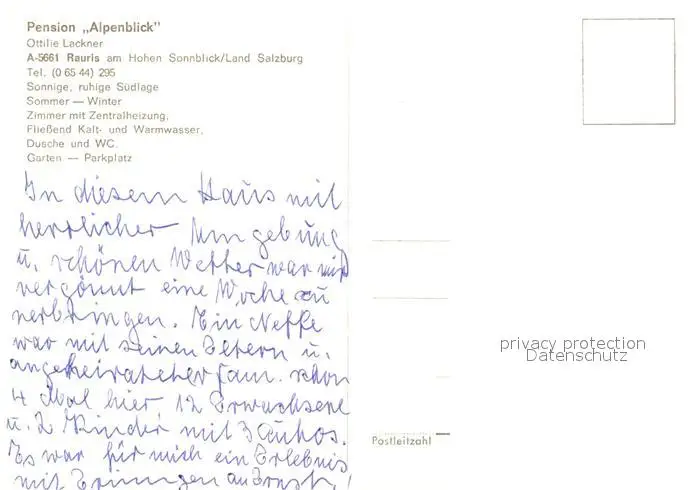 Pension „Alpenblick"
Ottilie Lackner
A-5661 Rauris am Hohen Sonnblick/Land Salzburg
Tel. (0 65 44) 295
Sonnige, ruhige Südlage
Sommer — Winter
Zimmer mit Zentralheizung,
Fließend Kalt- und Warmwasser,
Dusche und WC.
Garten — Parkplatz
In diesem Haus mit
herrlicher Umgebung
u. schönen Wetter war mir
vergönnt eine Woche zu
verbringen. Ein Neffe
war mit seinen Eltern u.
angeheirateter Fam. schon
4 Mal hier, 12 Erwachsene
u. 2 Kinder mit 3 Autos.
Es war für mich ein Erlebnis
mit an Ernst!
privacy protection
Datenschutz
Postleitzahl